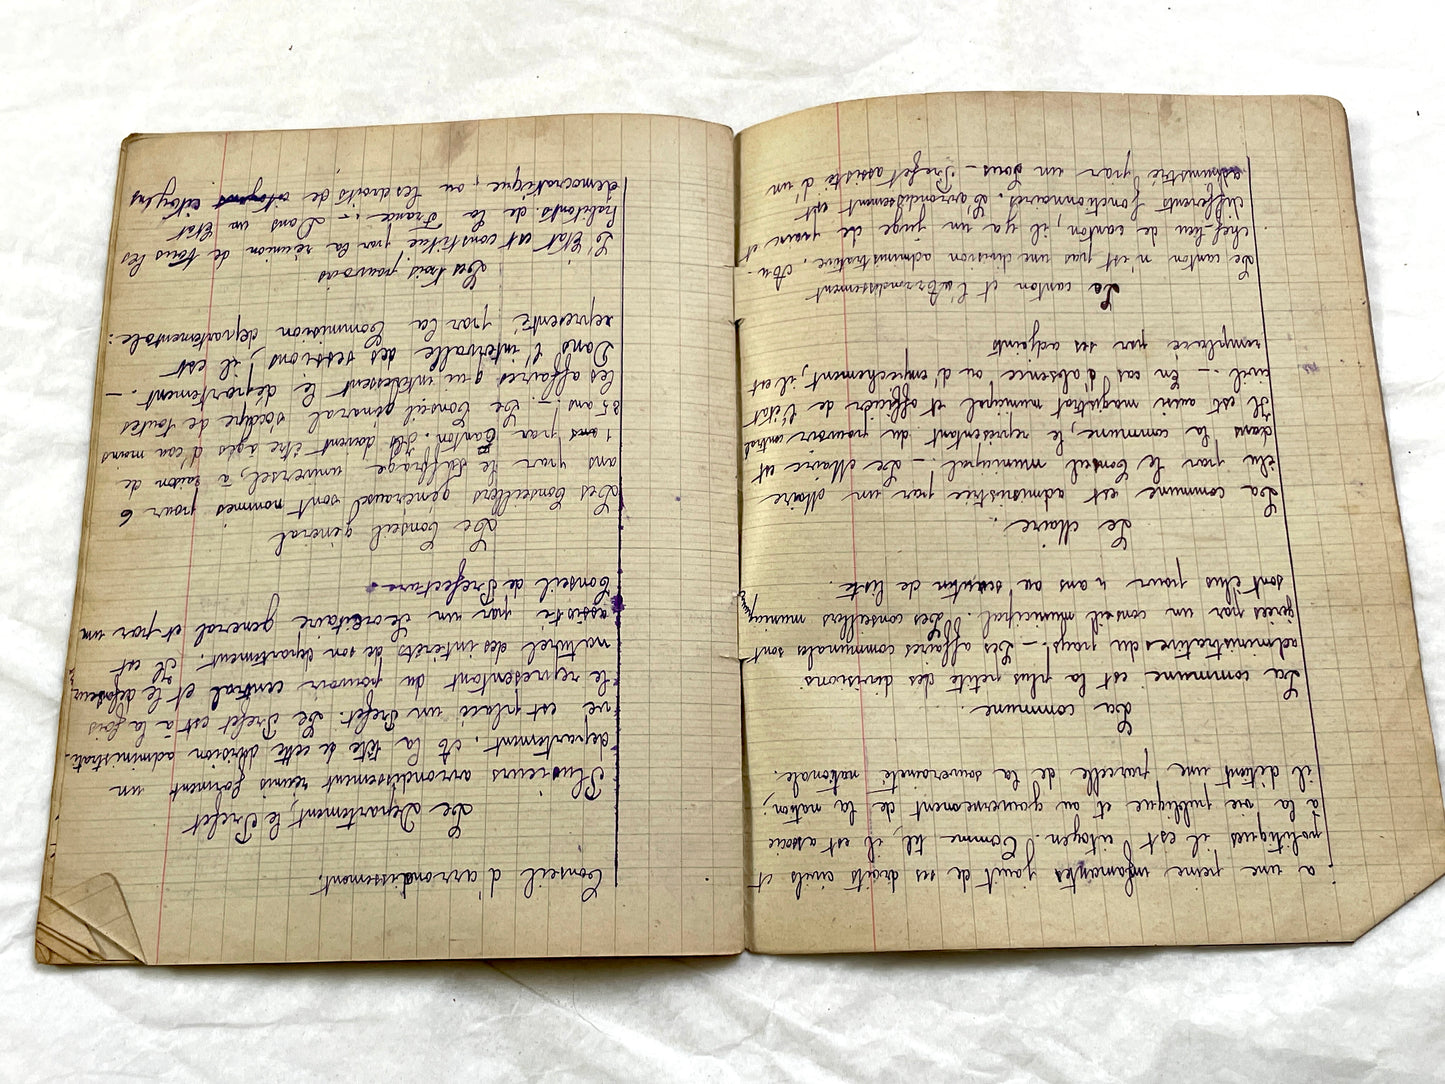 à une peine infamantes jouit de ses droits civils et
politiques il est citoyen. Comme tel, il est associé
à la vie publique et au gouvernement de la nation,
il détient une parcelle de la souveraineté nationale.
La commune.
La commune est la plus petite des divisions
administratives du pays. - Les affaires communales sont
gérées par un conseil municipal. Les conseillers municip
sont élus pour 4 ans au scrutin de liste.
Le Maire.
La commune est administrée par un Maire
élu par le Conseil municipal. - Le Maire est
dans la commune, le représentant du pouvoir central
Il est aussi magistrat municipal et officier de l'état
civil. - En cas d'absence ou d'empêchement, il est
remplacé par ses adjoints
Le canton et l'arrondissement
Le canton n'est pas une division administrative. Au
chef-lieu de canton, il y a un juge de paix et
différents fonctionnaires. L'arrondissement est
administré par un Sous-Préfet assisté d'un
Conseil d'arrondissement.
Le Département, le Préfet
Plusieurs arrondissement réunis forment un
département. A la tête de cette division administrati-
ve est placé un Préfet. Le Préfet est à la fois
le représentant du pouvoir central et le défenseur
naturel des interets de son département. Il est
assisté par un Secrétaire général et par un
Conseil de Préfecture.
Le Conseil général
Les Conseillers généraux sont nommés pour 6
ans par le suffrage universel, à raison de
1 par Canton. Ils doivent être agés d'au moins
25 ans. - Le Conseil général s'occupe de toutes
les affaires qui intéressent le département. -
Dans l'intervalle des sessions, il est
représenté par la Commission départementale.
Les trois pouvoirs
L'État est constitué par la réunion de tous les
habitants de la France. - Dans un Etat
démocratique, où les droits de citoyens